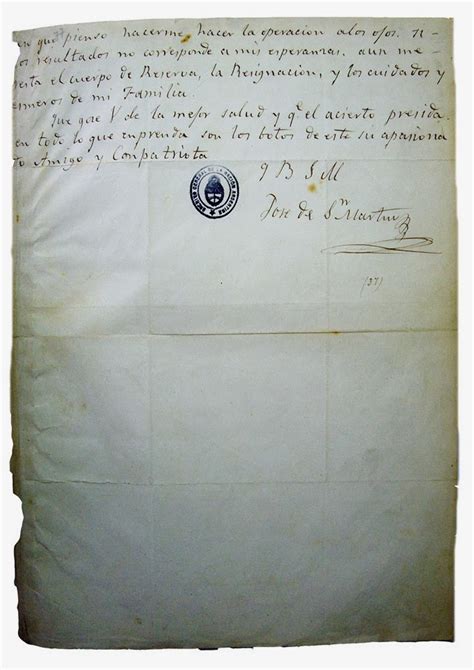 en que pienso hacerme hacer la operacion a los ojos. si
los resultados no corresponde a mis esperanzas, aun me
resta el cuerpo de Reserva, la Resignacion, y los cuidados y
esmeros de mi Familia.
Que goze V de la mejor salud y qe el acierto presida
en todo lo que emprenda son los botos de este su apasiona
do Amigo y Conpatriota
q B S M
Jose de Sn Martin
ARCHIVO GENERAL DE LA NACION ARGENTINA
(37)